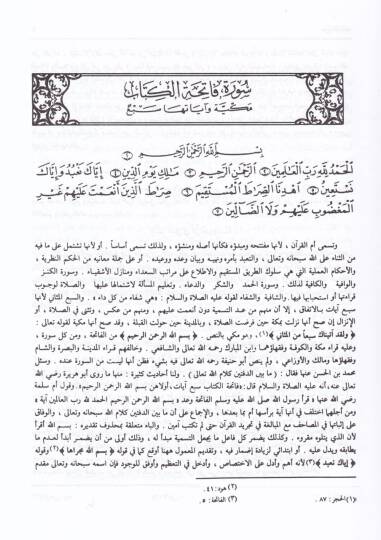 سورة فاتحة الكتاب
مكية وآياتها سبع
بسم الله الرحمن الرحيم
الحمد لله رب العالمين الرحمن الرحيم مالك يوم الدين إياك نعبد وإياك
نستعين اهدنا الصراط المستقيم صراط الذين أنعمت عليهم غير
المغضوب عليهم ولا الضالين
وتسمى أم القرآن ، لأنها مفتتحه ومبدؤه فكأنها أصله ومنشؤه ، ولذلك تسمى أساساً . أو لأنها تشتمل على ما فيه
من الثناء على الله سبحانه وتعالى ، والتعبد بأمره ونهيه وبيان وعده ووعيده . أو على جملة معانيه من الحكم النظرية ،
والأحكام العملية التي هي سلوك الطريق المستقيم والاطلاع على مراتب السعداء ومنازل الأشقياء . وسورة الكنز
والوافية والكافية لذلك . وسورة الحمد والشكر والدعاء . وتعليم المسألة لاشتمالها عليها والصلاة لوجوب
قراءتها أو استحبابها فيها. والشافية والشفاء لقوله عليه الصلاة والسلام : «هي شفاء من كل داء» . والسبع المثاني لأنها
سبع آيات بالاتفاق ، إلا أن منهم من عد التسمية دون أنعمت عليهم ، ومنهم من عكس ، وتثنى في الصلاة ، أو
الإنزال إن صح أنها نزلت بمكة حين فرضت الصلاة ، وبالمدينة حين حولت القبلة ، وقد صح أنها مكية لقوله تعالى :
﴿ولقد آتيناك سبعاً من المثاني﴾(١) ، وهو مكي بالنص . ﴿ بسم الله الرحمن الرحيم ﴾ من الفاتحة ، ومن كل سورة ،
وعليه قراء مكة والكوفة وفقهاؤهما وابن المبارك رحمه الله تعالى والشافعي . وخالفهم قراء المدينة والبصرة والشام
وفقهاؤها ومالك والأوزاعي ، ولم ينص أبو حنيفة رحمه الله تعالى فيه بشيء فظن أنها ليست من السورة عنده . وسئل
محمد بن الحسن عنها فقال : (ما بين الدفتين كلام الله تعالى) . ولنا أحاديث كثيرة : منها ما روى أبو هريرة رضي الله
تعالى عنه، أنه عليه الصلاة والسلام قال: «فاتحة الكتاب سبع آيات، أولاهن بسم الله الرحمن الرحيم». وقول أم سلمة
رضي الله عنها «قرأ رسول الله صلى الله عليه وسلم الفاتحة وعد «بسم الله الرحمن الرحيم الحمد لله رب العالمين آية»
ومن أجلهما اختلف في أنها آية برأسها أم بما بعدها ، والإجماع على أن ما بين الدفتين كلام الله سبحانه وتعالى ، والوفاق
على إثباتها في المصاحف مع المبالغة في تجريد القرآن حتى لم تكتب آمين . والباء متعلقة بمحذوف تقديره : بسم الله أقرأ
لأن الذي يتلوه مقروء . وكذلك يضمر كل فاعل ما يجعل التسمية مبدأ له ، وذلك أولى من أن يضمر أبدأ لعدم ما
يطابقه ويدل عليه . أو ابتدائي لزيادة إضمار فيه ، وتقديم المعمول ههنا أوقع كما في قوله ﴿ بسم الله مجراها ﴾(٢) وقوله
﴿ إياك نعبد ﴾(٣) لأنه أهم وأدل على الاختصاص ، وأدخل في التعظيم وأوفق للوجود فإن اسمه سبحانه وتعالى مقدم
(١) الحجر: ٨٧ .
(٢) هود: ٤١ .
(٣) الفاتحة: ٥ .